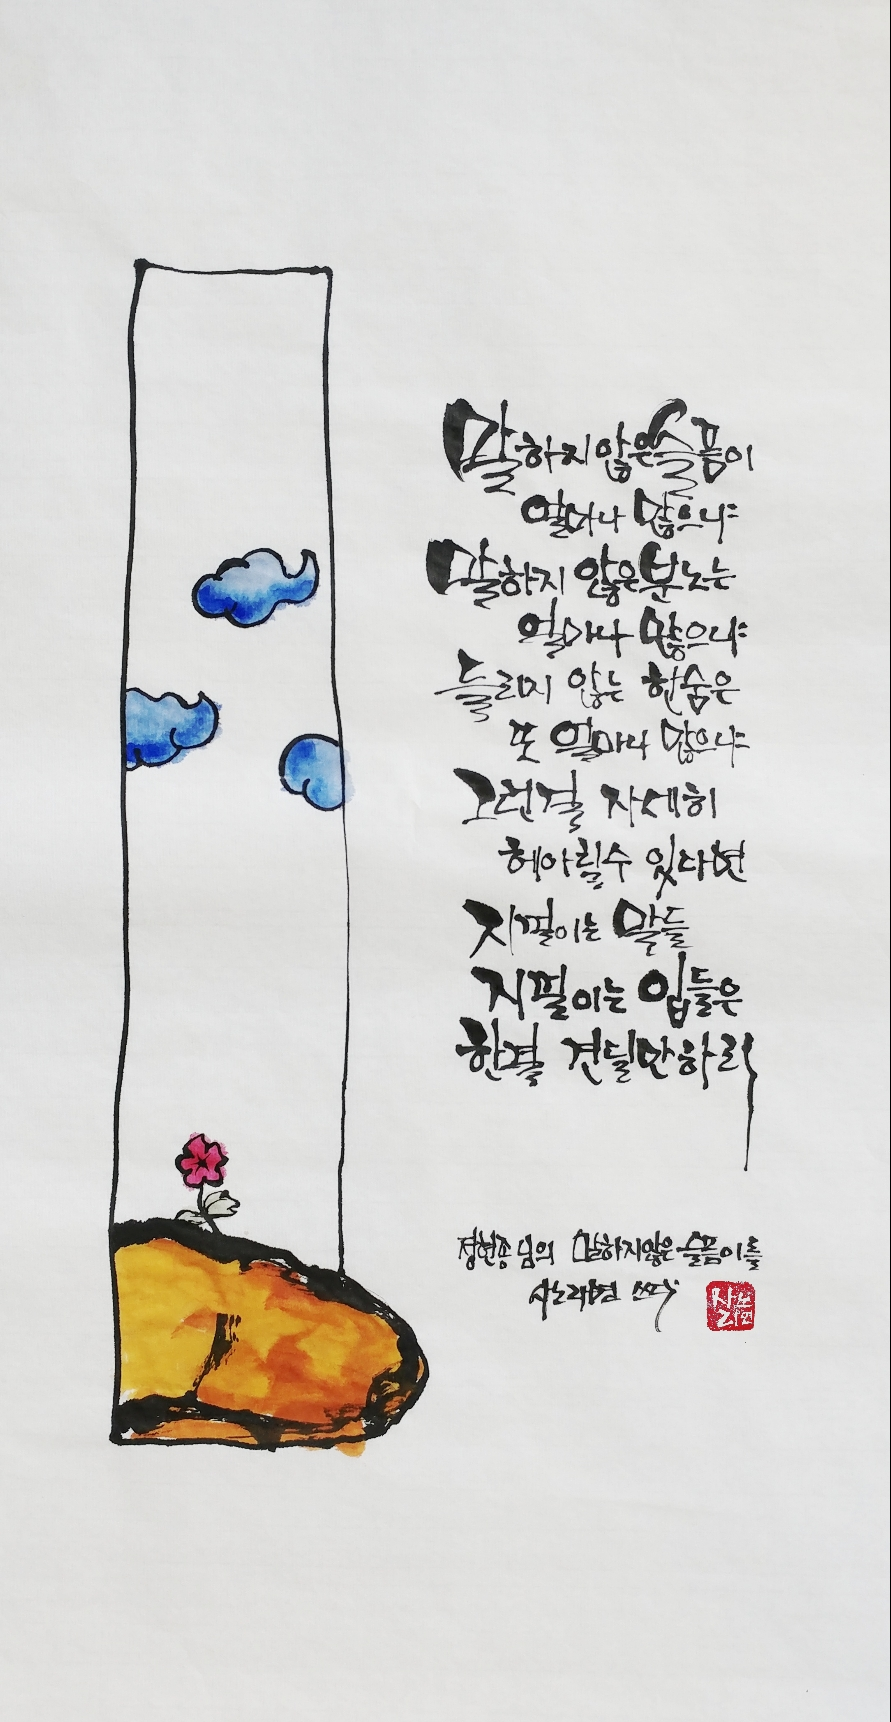 말하지 않은 슬픔이
얼마나 많으냐
말하지 않은 분노는
얼마나 많으냐
들리지 않는 한숨은
또 얼마나 많으냐
그런걸 자세히
헤아릴수 있다면
지껄이는 말들
지껄이는 입들은
한결 견딜만하리
정현종님의 말하지않은 슬픔이를
사노라면 쓰다